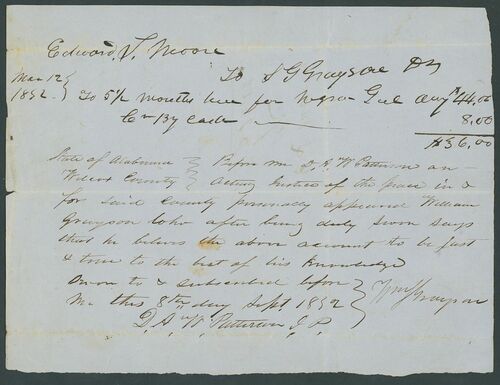 Edward T. Moore
To S G Grayson Dr
Mar 12
1852 To 5½ months hire for Negro Girl @ $8 44.00
Cr By cash 8.00
$36.00
State of Alabama } Before me D. A. W Patterson an
Wilcox County } Acting Justice of the peace in &
for said County personally appeared William
Grayson who after being duly sworn says
that he believes the above account to be just
& true to the best of his knowledge
Sworn to & subscribed before
me this 8th day Sept 1852 } Wm Grayson
D. A. W. Patterson J. P.